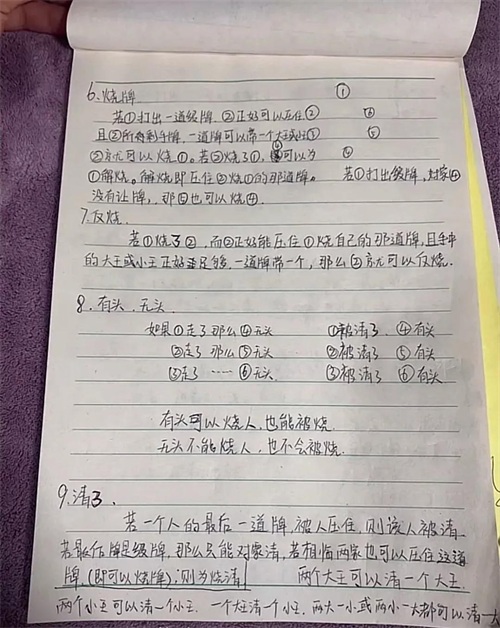 6、烧牌 ①
若①打出一道级牌,②正好可以压住② ⑥
且②所有剩手牌,一道可以带一个大王或③ ⑤
②就可以烧①。若②烧了①,④可以为 ④
①解烧。解烧即压住②烧①的那道牌。 若①打出级牌,对家④
没有让牌,那②也可以烧④.
7、反烧.
若①烧了②,而②正好能压住①烧自己的那道牌,且手中
的大王或小王正好足够,一道牌带一个,那么②就可以反烧.
8、有头、无头
如果①走了那么④无头 ①被清了,④有头
②走了 那么⑤无头 ②被清了 ⑤有头
③走了 …… ⑥无头. ③被清了 ⑥有头
有头可以烧人,也能被烧.
无头不能烧人,也不会被烧.
9、清了.
若一个人的最后一道牌,被人压住,则该人被清.
若最后牌是级牌,那么只能对家清,若相临两家也可以压住这道
牌(即可以烧牌),则为烧清 两个大王可以清一个大王.
两个小王可以清一个小王.一个大王清一个小王.两大一小或两小一大都可以清一